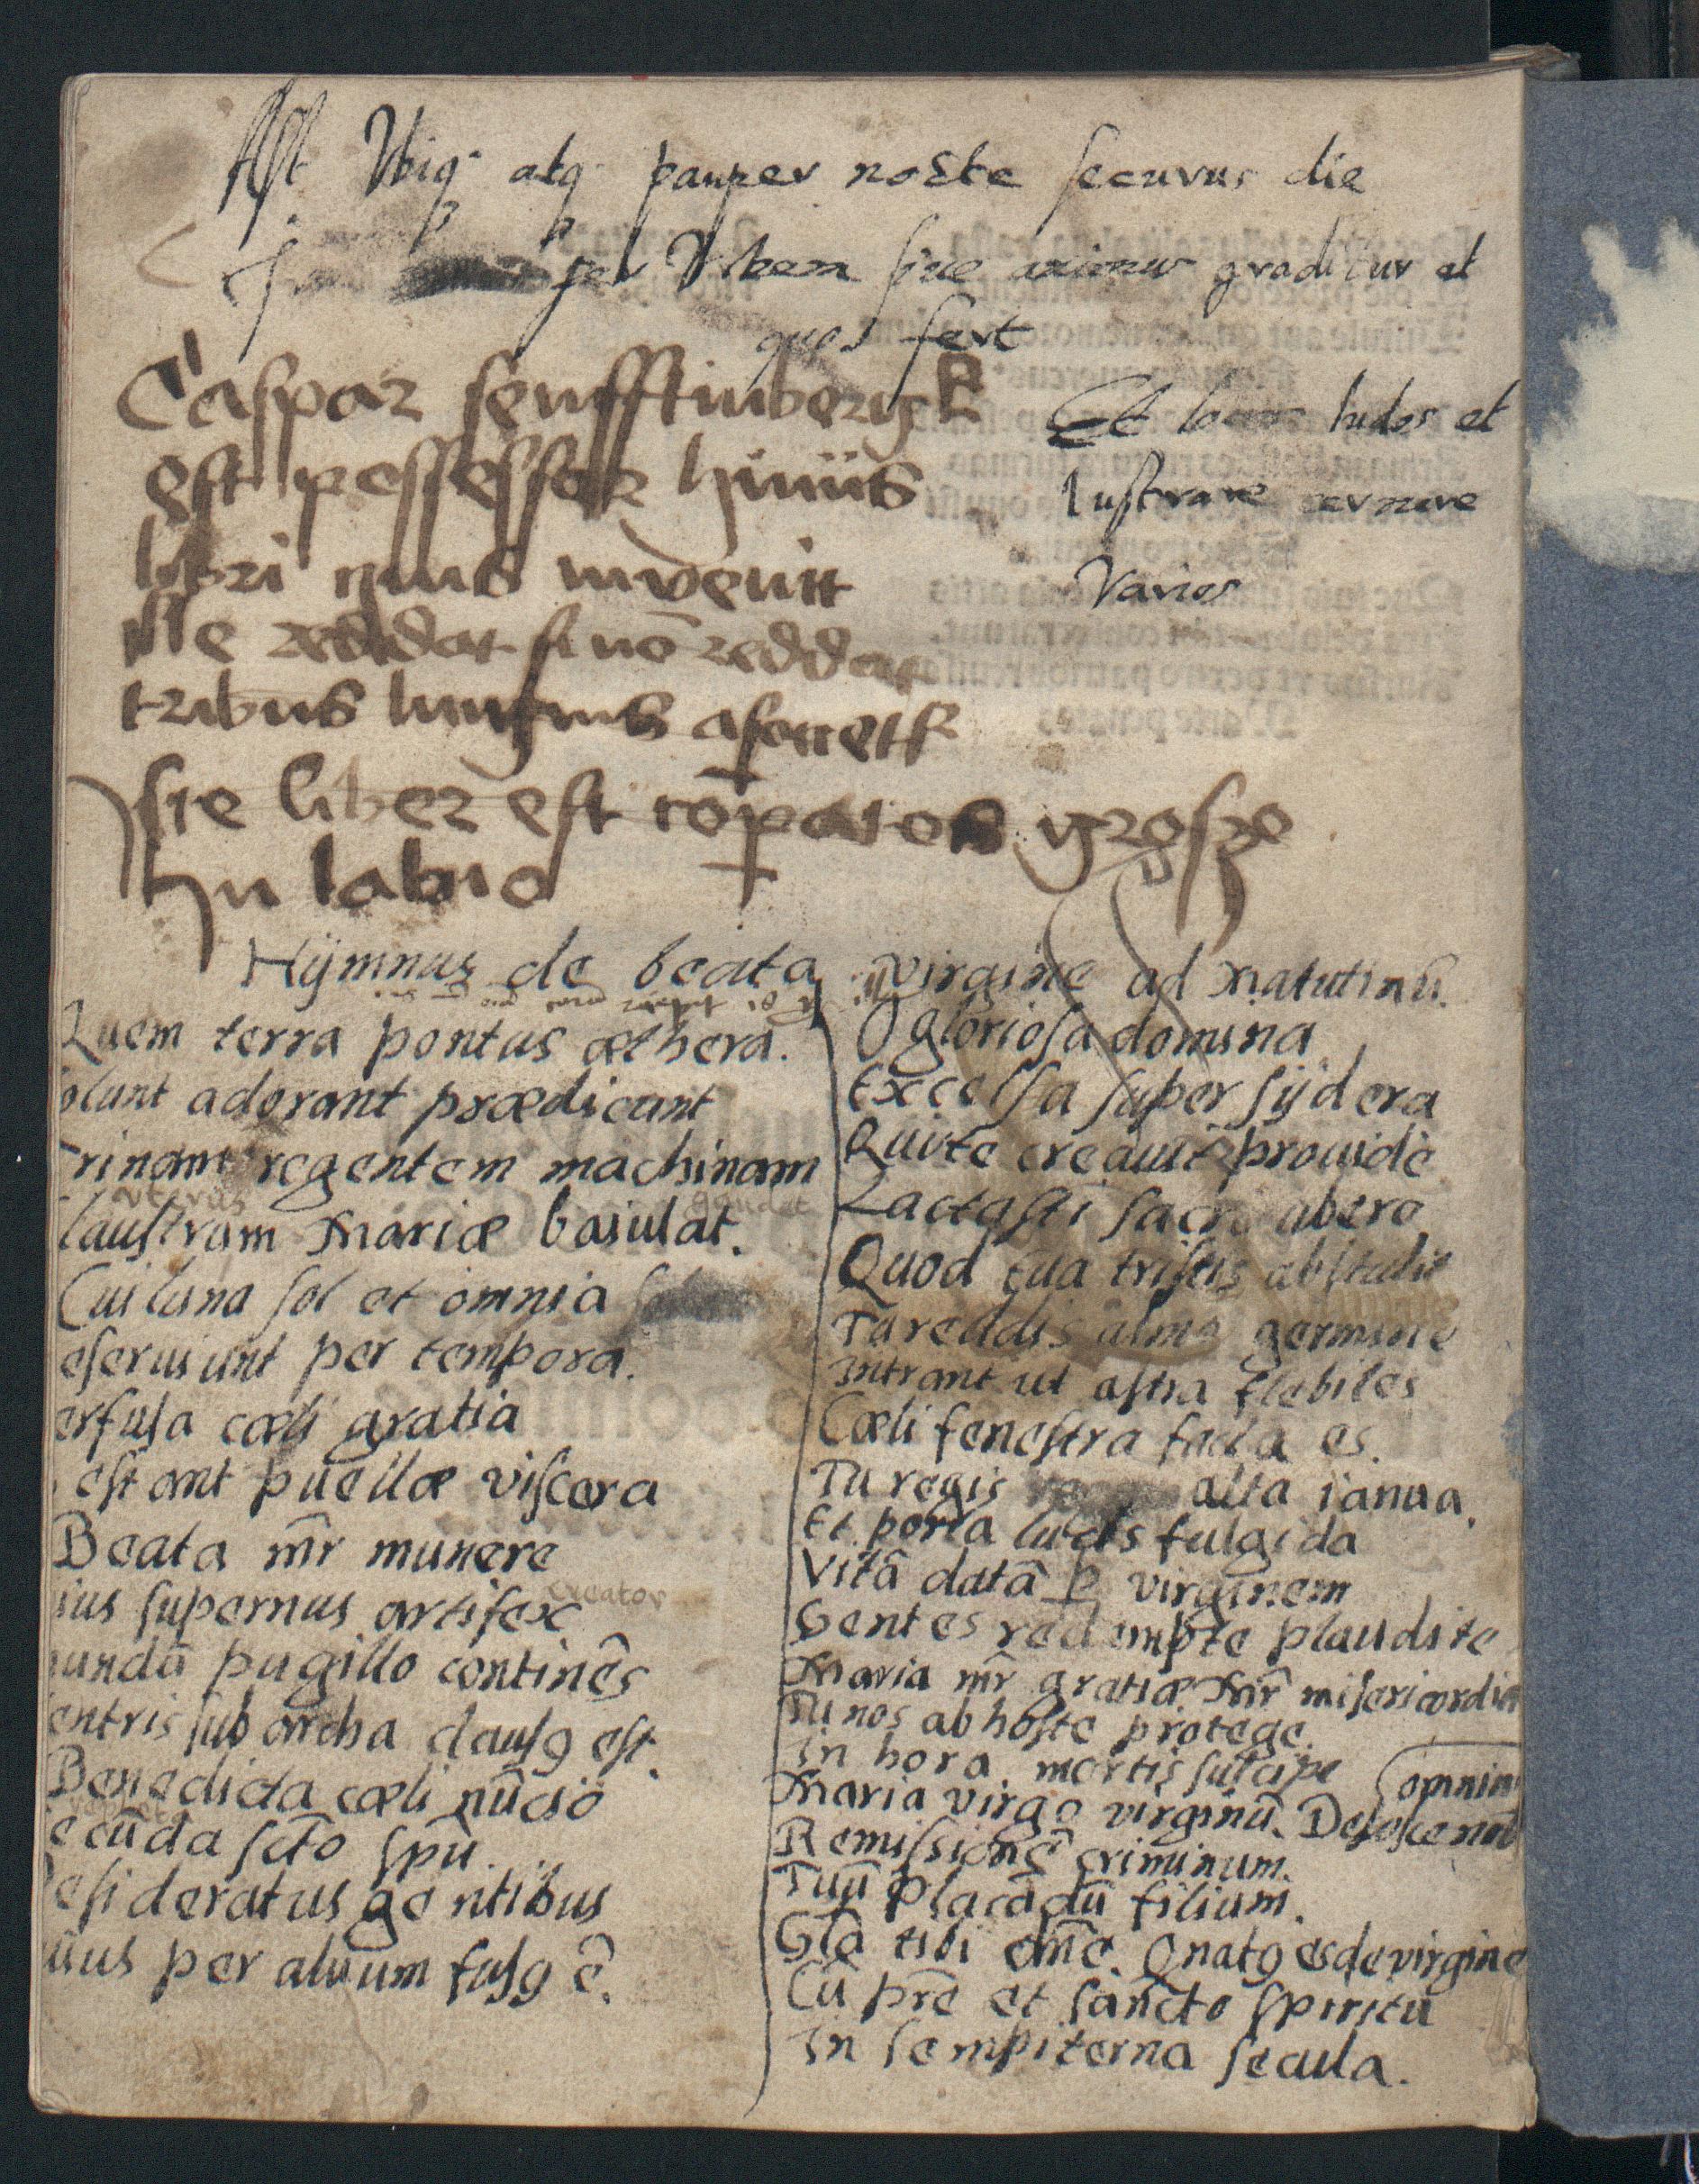 Ast Ubiqȝ atqȝ pauper nocte securus die
per Urbem sine graditur et
quos fert
Et ludos et
lustrare cernere
Varios
Caspar senfftinbergk
est possessor huiius
libri quis invenit
ille reddat si nō reddat
tribus lignis
Iste liber est cōparatos
In
Hÿmnus de beata virgine ad matutinū.
Quem terra pontus æthera.
olunt adorant prædicant
rinam regentem machinam
uterus gaudet
laustrum Mariæ baiulat.
Cui luna sol et omnia
eseruiunt per tempora.
erfusa cæli gratia
estant puellæ viscera
Beata mr̄ munere
creator
ius supernus artifex
undā pugillo continēs
entris sub archa clausꝯ est.
Benedicta cæli nūcio
ecūda scto spū.
esideratus gentibus
uius per aluum fusꝯ ē.
O gloriosa domina
Excelsa super sÿdera
Qui te creauit prouide
Lactasti sacro ubere
Quod eua tristis abstulit
Tu reddis almo germine
intrant ut astra flebiles
Cæli fenestra facta es.
Tu regis alta ianua.
Et porta lucis fulgida
Vitā datā ꝑ virginem
Gentes redempte plaudite
Maria mr̄ gratiæ Mr̄ misericordiæ
Tu nos ab hoste protege.
in hora mortis suscipe
Maria virgo virginū. Deposce nob
omnin
Remissionē criminum.
Tuū placādū filium.
Glā tibi dn̄e. Q natꝯ es de virgine
Cū pr̄e et sancto spiritu
In sempiterna secula.